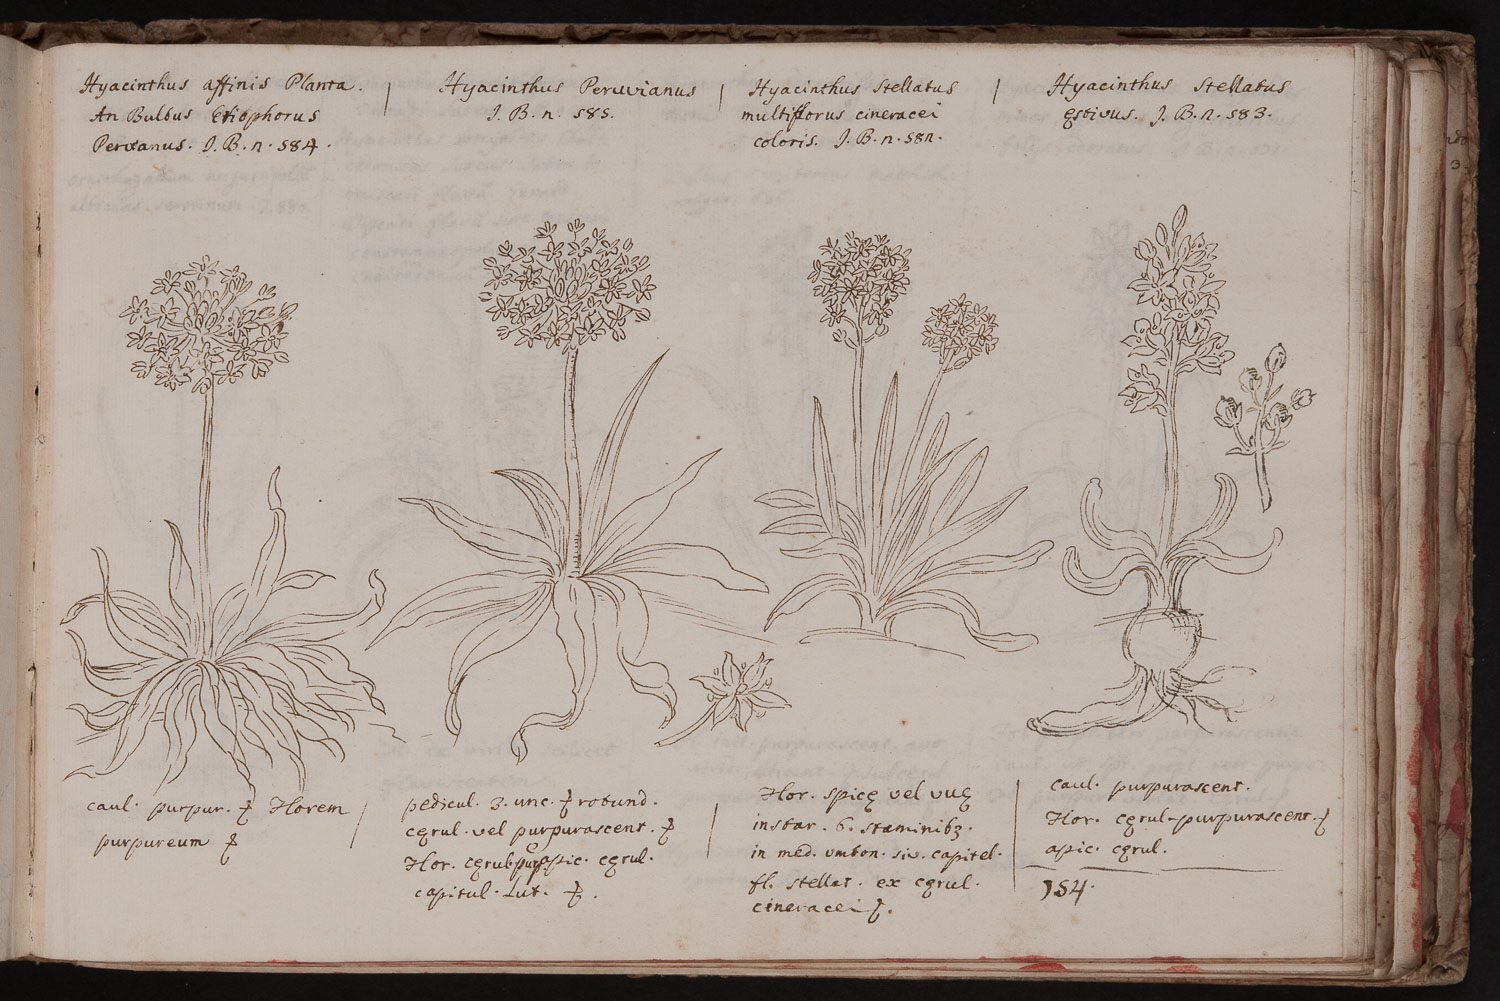 Hyacinthus affinis Planta.
An Bulbus Eriophorus
Peruanus. J. B. n. 584.
Hyacinthus Peruvianus
J. B. n. 585.
Hyacinthus stellatus
multiflorus cineracei
coloris. J. B. n. 582.
Hyacinthus stellatus
ęstivus. J. B. n. 583.
caul. purpur. Florem
purpureum
pedicul. 3. unc. rotund.
cęrul. vel purpurascent.
Flor. cęrul. apic. cęrul.
capitul. Lut.
Flor. spicę vel vuę
instar. 6. staminibꝫ.
in med. umbon. siv. capitel.
fl. stellat. ex cęrul.
cineracei
caul. purpurascent.
Flor. cęrul-purpurascent.
apic. cęrul.
154.